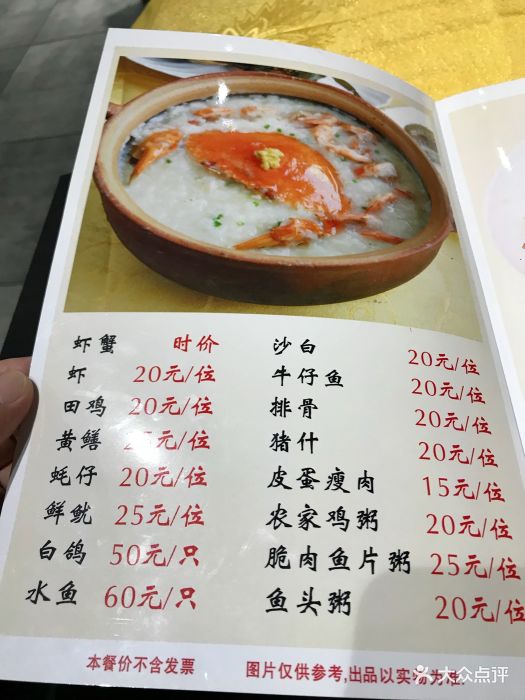 虾蟹 时价
虾 20元/位
田鸡 20元/位
黄鳝 25元/位
蚝仔 20元/位
鲜鱿 25元/位
白鸽 50元/只
水鱼 60元/只
沙白 20元/位
牛仔鱼 20元/位
排骨 20元/位
猪什 20元/位
皮蛋瘦肉 15元/位
农家鸡粥 20元/位
脆肉鱼片粥 25元/位
鱼头粥 20元/位
本餐价不含发票
图片仅供参考,出品以实物为准
大众点评